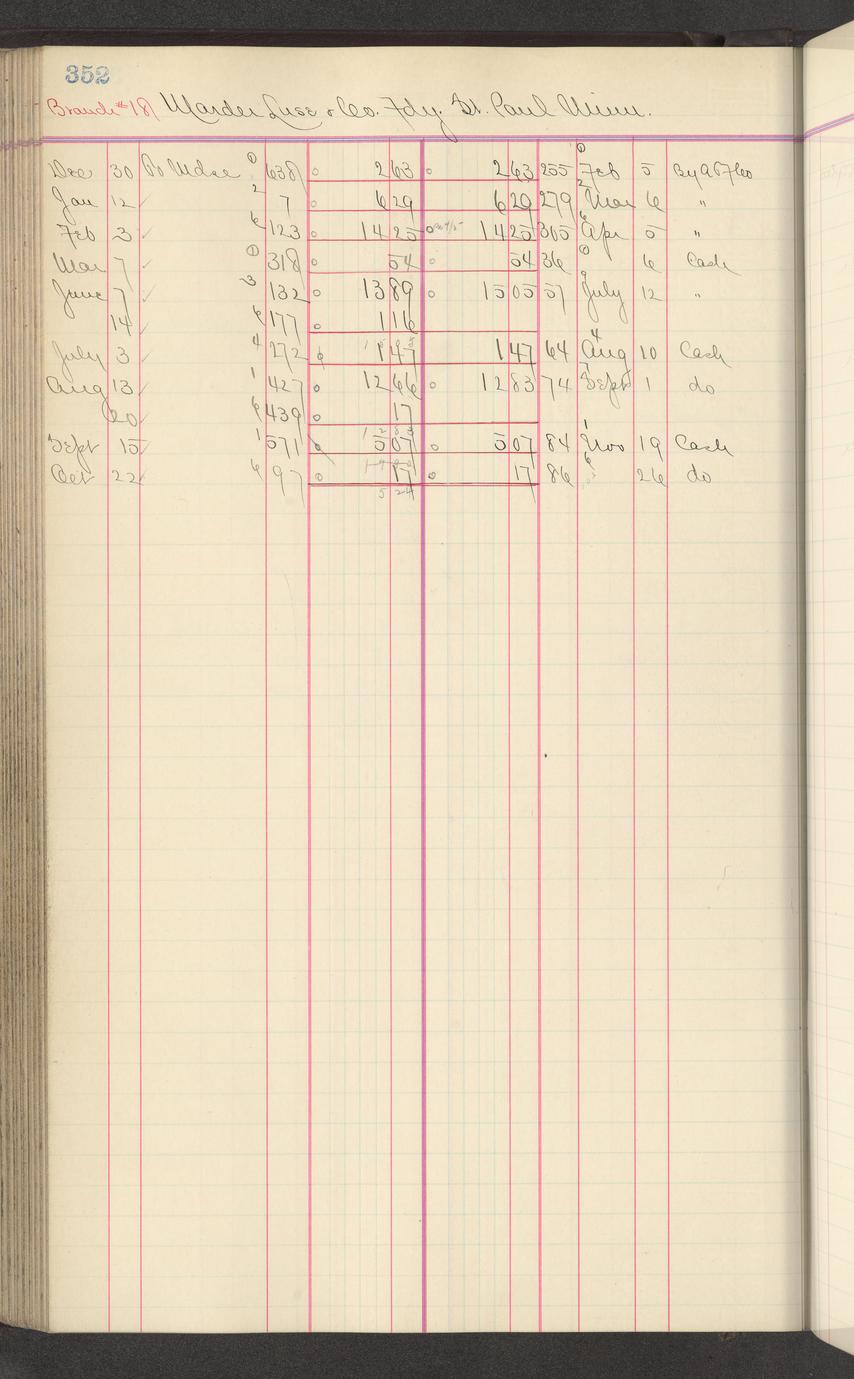 352
Branch #18 Marder Luse & Co. Fdy. St. Paul Minn.
Dec 30 To Mdse 1 638 2 63 2 63 255 1 Feb 5 By
Jan 12 ✓ 2 7 6 29 6 29 279 2 Mar 6 "
Feb 3 ✓ 6 123 14 25 14 25 305 6 Apr 5 "
Mar 7 ✓ 1 318 54 54 36 6 Cash
June 7 ✓ 3 132 13 89 15 05 57 9 July 12 "
14 ✓ 6 177 1 16
July 3 ✓ 4 272 1 47 1 47 64 4 Aug 10 Cash
Aug 13 ✓ 1 427 12 66 12 83 74 7 Sept 1 do
20 ✓ 6 439 17
12 83
Sept 15 ✓ 1 571 5 07 5 07 84 1 Nov 19 Cash
Oct 22 ✓ 6 97 17 17 86 6 26 do
5 24